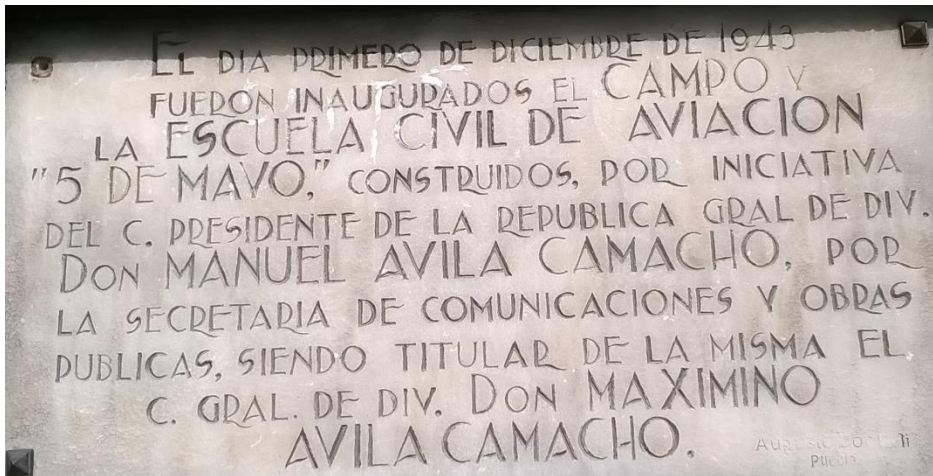 EL DIA PRIMERO DE DICIEMBRE DE 1943
FUERON INAUGURADOS EL CAMPO Y
LA ESCUELA CIVIL DE AVIACION
"5 DE MAYO," CONSTRUIDOS, POR INICIATIVA
DEL C. PRESIDENTE DE LA REPUBLICA GRAL DE DIV.
DON MANUEL AVILA CAMACHO, POR
LA SECRETARIA DE COMUNICACIONES Y OBRAS
PUBLICAS, SIENDO TITULAR DE LA MISMA EL
C. GRAL. DE DIV. DON MAXIMINO
AVILA CAMACHO.